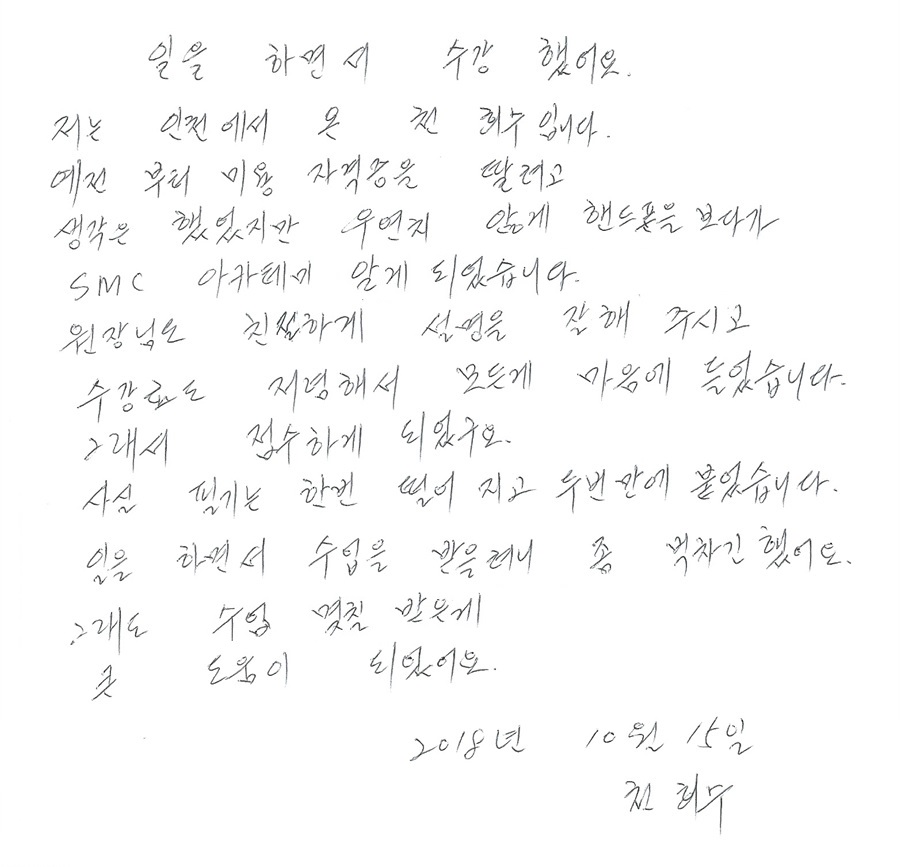 일을 하면서 수강 했어요.
저는 인천에서 온 천 희수입니다.
예전 부터 미용 자격증을 딸려고
생각은 했었지만 우연치 않게 핸드폰을 보다가
SMC 아카테미 알게 되었습니다.
원장님도 친절하게 설명을 잘해 주시고
수강료도 저렴해서 모든게 마음에 들었습니다.
그래서 접수하게 되었구요.
사실 필기는 한번 떨어 지고 두번만에 붙었습니다.
일을 하면서 수업을 받을려니 좀 벅차긴했어요.
그래도 수업 몇칠 받은게
큰 도움이 되었어요.
2018년 10월 15일
천 희수